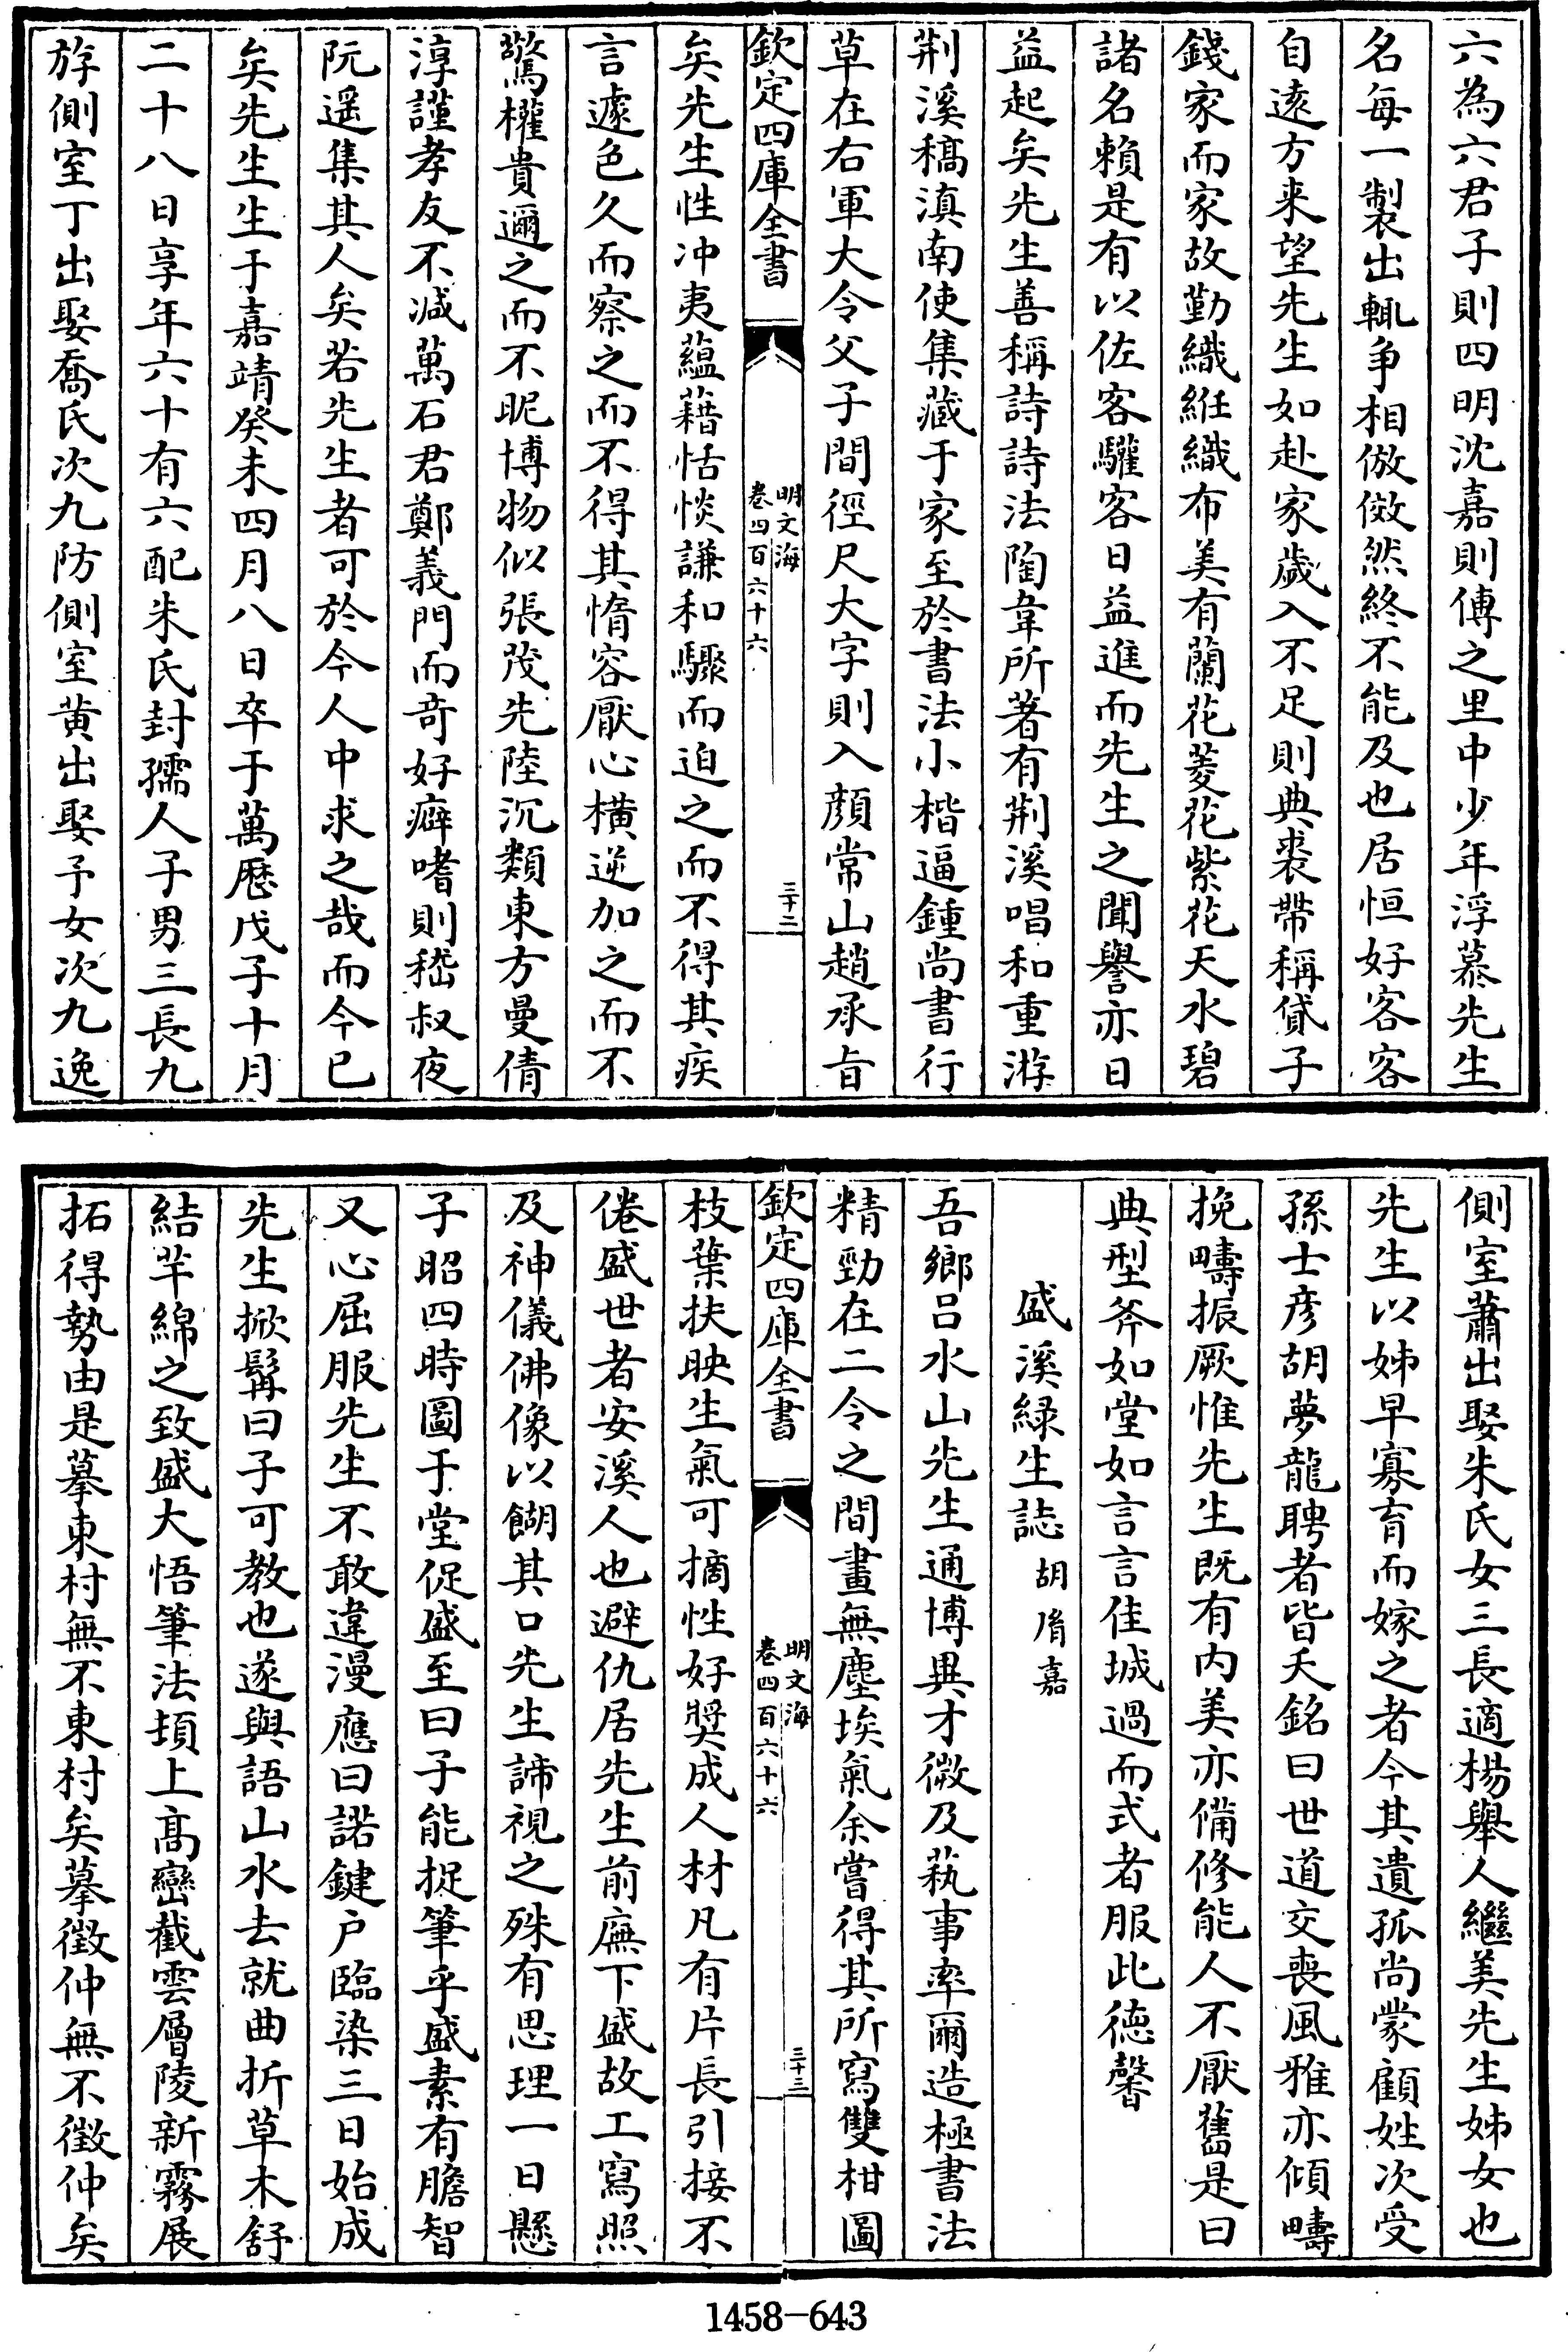 六為六君子則四明沈嘉則傅之里中少年浮慕先生
名每一製出輒争相倣傚然終不能及也居恒好客客
自逺方来望先生如赴家歲入不足則典裘帶稱貸子
錢家而家故勤織絍織布美有蘭花菱花紫花天水碧
諸名賴是有以佐客驩客日益進而先生之聞譽亦日
益起矣先生善稱詩詩法陶韋所著有荆溪唱和重游
荆溪稿滇南使集藏于家至於書法小楷逼鍾尚書行
草在右軍大令父子間徑尺大字則入顔常山趙承旨
欽定四庫全書
明文海
卷四百六十六
三十二
矣先生性冲夷蘊藉恬惔謙和驟而迫之而不得其疾
言遽色久而察之而不得其惰容厭心横逆加之而不
驚權貴邇之而不昵博物似張茂先陸沉類東方曼倩
淳謹孝友不減萬石君鄭義門而竒好癖嗜則嵇叔夜
阮遥集其人矣若先生者可於今人中求之哉而今已
矣先生生于嘉靖癸未四月八日卒于萬厯戊子十月
二十八日享年六十有六配朱氏封孺人子男三長九
斿側室丁出娶喬氏次九防側室黄出娶予女次九逸
側室蕭出娶朱氏女三長適楊舉人繼美先生姊女也
先生以姊早寡育而嫁之者今其遺孤尚蒙顧姓次受
孫士彦胡夢龍聘者皆夭銘曰世道交喪風雅亦傾疇
挽疇振厥惟先生既有内美亦備修能人不厭舊是曰
典型斧如堂如言言佳城過而式者服此徳馨
盛溪緑生誌 胡胤嘉
吾鄉吕水山先生通博異才微及蓺事率爾造極書法
精勁在二令之間畫無塵埃氣余嘗得其所寫雙柑圖
欽定四庫全書
明文海
卷四百六十六
三十三
枝葉扶映生氣可摘性好奬成人材凡有片長引接不
倦盛世者安溪人也避仇居先生前廡下盛故工寫照
及神儀佛像以餬其口先生諦視之殊有思理一日懸
子昭四時圖于堂促盛至曰子能捉筆乎盛素有膽智
又心屈服先生不敢違漫應曰諾鍵户臨染三日始成
先生掀髯曰子可教也遂與語山水去就曲折草木舒
結芊綿之致盛大悟筆法頓上髙巒截雲層陵新霧展
拓得勢由是摹東村無不東村矣摹徴仲無不徴仲矣
1458-643